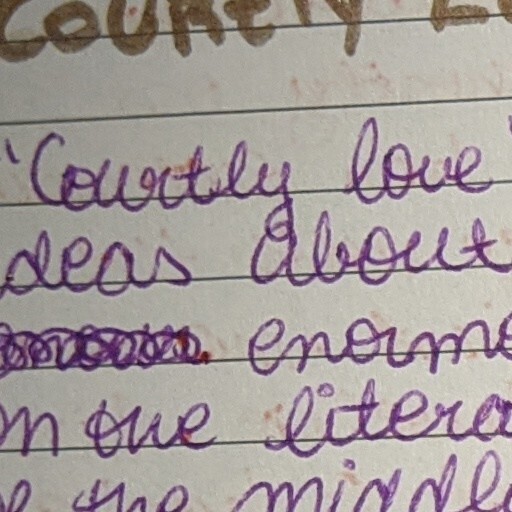 COURTLY
'Courtly love'
deas about
enormo
n the litera
the middle